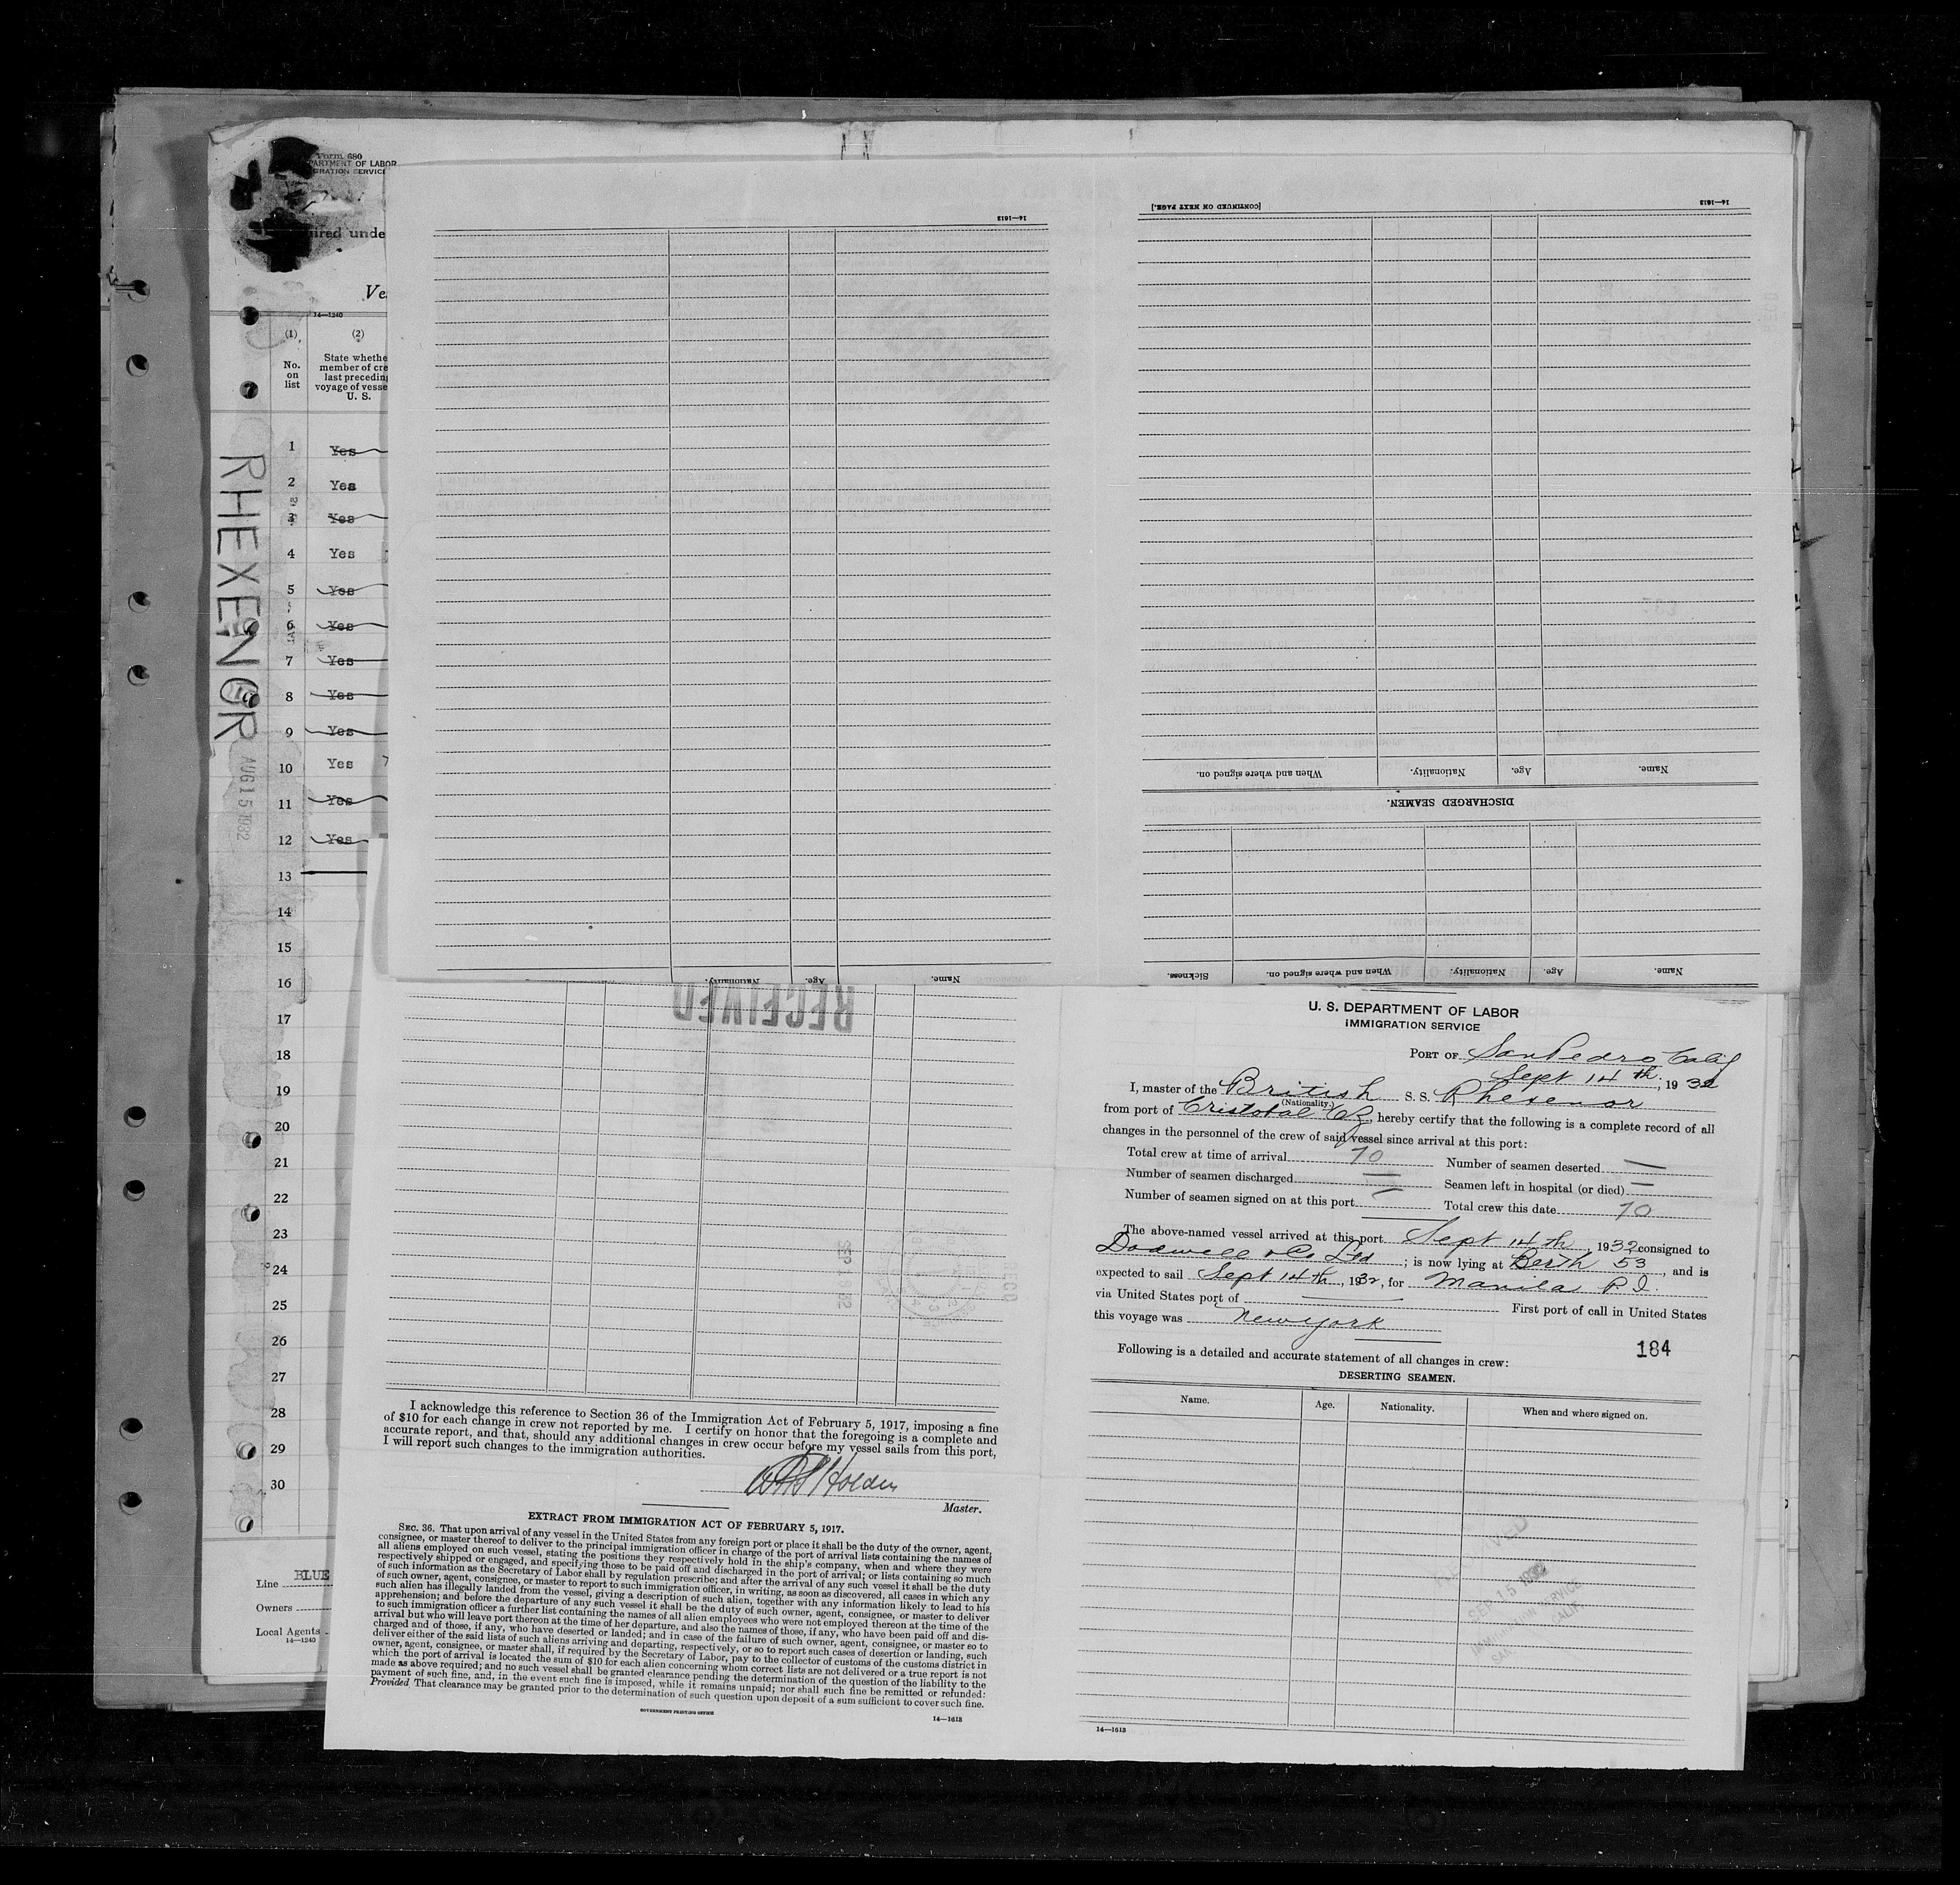 Form 680
DEPARTMENT OF LABOR
IMMIGRATION SERVICE
uired unde
Ve
14—1240
(1)
(2)
No.
on
list
State whethe
member of cre
last preceding
voyage of vesse
U. S.
1 Yes
2 Yes
3 Yes
4 Yes
5 Yes
6 Yes
7 Yes
8 Yes
9 Yes
10 Yes
11 Yes
12 Yes
13
14
15
16
17
18
19
20
21
22
23
24
25
26
27
28
29
30
RHEXENOR
AUG 15 1932
Line BLUE
Owners
Local Agents
14—1240
14—1613
Name. Age. Nationality.
[CONTINUED ON NEXT PAGE.]
14—1613
Name. Age. Nationality. When and where signed on.
DISCHARGED SEAMEN.
Name. Age. Nationality. When and where signed on. Sickness.
RECEIVED
I acknowledge this reference to Section 36 of the Immigration Act of February 5, 1917, imposing a fine
of $10 for each change in crew not reported by me. I certify on honor that the foregoing is a complete and
accurate report, and that, should any additional changes in crew occur before my vessel sails from this port,
I will report such changes to the immigration authorities.
Holden
Master.
EXTRACT FROM IMMIGRATION ACT OF FEBRUARY 5, 1917.
SEC. 36. That upon arrival of any vessel in the United States from any foreign port or place it shall be the duty of the owner, agent,
consignee, or master thereof to deliver to the principal immigration officer in charge of the port of arrival lists containing the names of
all aliens employed on such vessel, stating the positions they respectively hold in the ship's company, when and where they were
respectively shipped or engaged, and specifying those to be paid off and discharged in the port of arrival; or lists containing so much
of such information as the Secretary of Labor shall by regulation prescribe; and after the arrival of any such vessel it shall be the duty
of such owner, agent, consignee, or master to report to such immigration officer, in writing, as soon as discovered, all cases in which any
such alien has illegally landed from the vessel, giving a description of such alien, together with any information likely to lead to his
apprehension; and before the departure of any such vessel it shall be the duty of such owner, agent, consignee, or master to deliver
to such immigration officer a further list containing the names of all alien employees who were not employed thereon at the time of the
arrival but who will leave port thereon at the time of her departure, and also the names of those, if any, who have been paid off and dis-
charged and of those, if any, who have deserted or landed; and in case of the failure of such owner, agent, consignee, or master so to
deliver either of the said lists of such aliens arriving and departing, respectively, or so to report such cases of desertion or landing, such
owner, agent, consignee, or master shall, if required by the Secretary of Labor, pay to the collector of customs of the customs district in
which the port of arrival is located the sum of $10 for each alien concerning whom correct lists are not delivered or a true report is not
made as above required; and no such vessel shall be granted clearance pending the determination of the question of the liability to the
payment of such fine, and, in the event such fine is imposed, while it remains unpaid; nor shall such fine be remitted or refunded:
Provided That clearance may be granted prior to the determination of such question upon deposit of a sum sufficient to cover such fine.
GOVERNMENT PRINTING OFFICE
14—1613
U. S. DEPARTMENT OF LABOR
IMMIGRATION SERVICE
PORT OF San Pedro Calif
Sept 14 th, 1932
I, master of the British S. S. Rhexenor
(Nationality.)
from port of Cristobal CZ, hereby certify that the following is a complete record of all
changes in the personnel of the crew of said vessel since arrival at this port:
Total crew at time of arrival 70 Number of seamen deserted —
Number of seamen discharged — Seamen left in hospital (or died) —
Number of seamen signed on at this port — Total crew this date 70
The above-named vessel arrived at this port Sept 14 th, 1932 consigned to
Dodwell & Co Ltd; is now lying at Berth 53, and is
expected to sail Sept 14 th, 1932, for Manila P. I.
via United States port of — First port of call in United States
this voyage was New York
Following is a detailed and accurate statement of all changes in crew:
184
DESERTING SEAMEN.
Name. Age. Nationality. When and where signed on.
RECEIVED
SEP 15 1932
IMMIGRATION SERVICE
SAN PEDRO CALIF.
14—1613